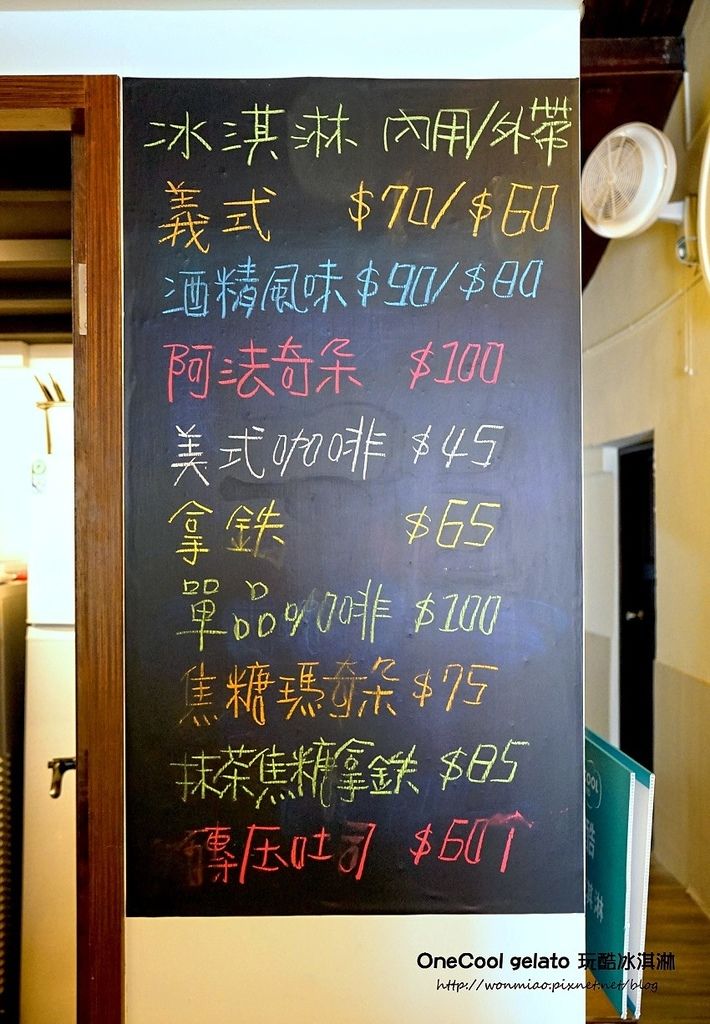 冰淇淋 內用/外帶
義式 $70/$60
酒精風味 $90/$80
阿法奇朵 $100
美式咖啡 $45
拿鉄 $65
單品咖啡 $100
焦糖瑪奇朵 $75
抹茶焦糖拿鉄 $85
磚压吐司 $60↑
OneCool gelato 玩酷冰淇淋
http://wonmiao.pixnet.net/blog